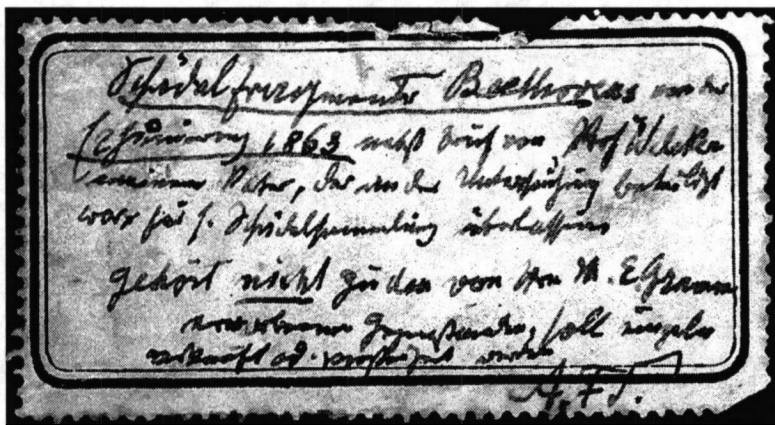 Schädelfragmente Beethovens von der
Exhumierung 1863 nebst Brief von Prof
meinem Vater, der an der Untersuchung beteiligt
war für s. Schädelsammlung überlassen
gehört nicht zu den von Hrn
erworbenen Gegenständen, soll
verkauft od. werden